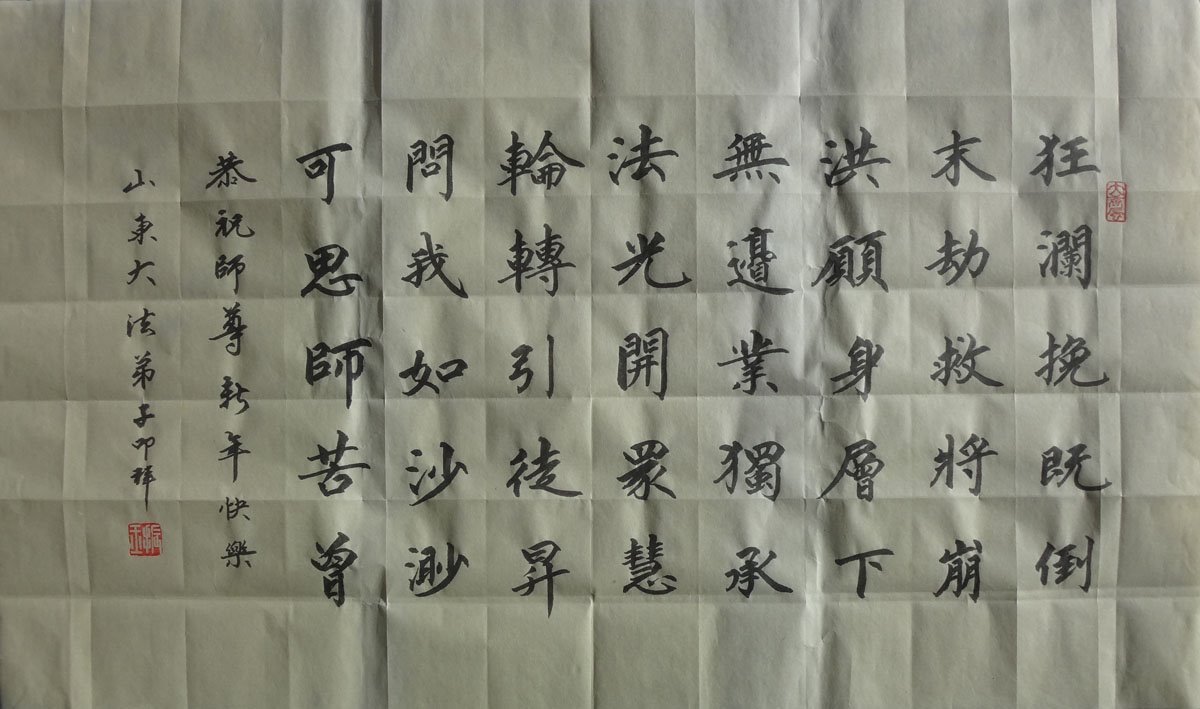 狂瀾挽既倒
末劫救將崩
洪願身層下
無邊業獨承
法光開眾慧
輪轉引徒昇
問我如沙渺
可思師苦曾
恭祝師尊新年快樂
山東大法弟子叩拜